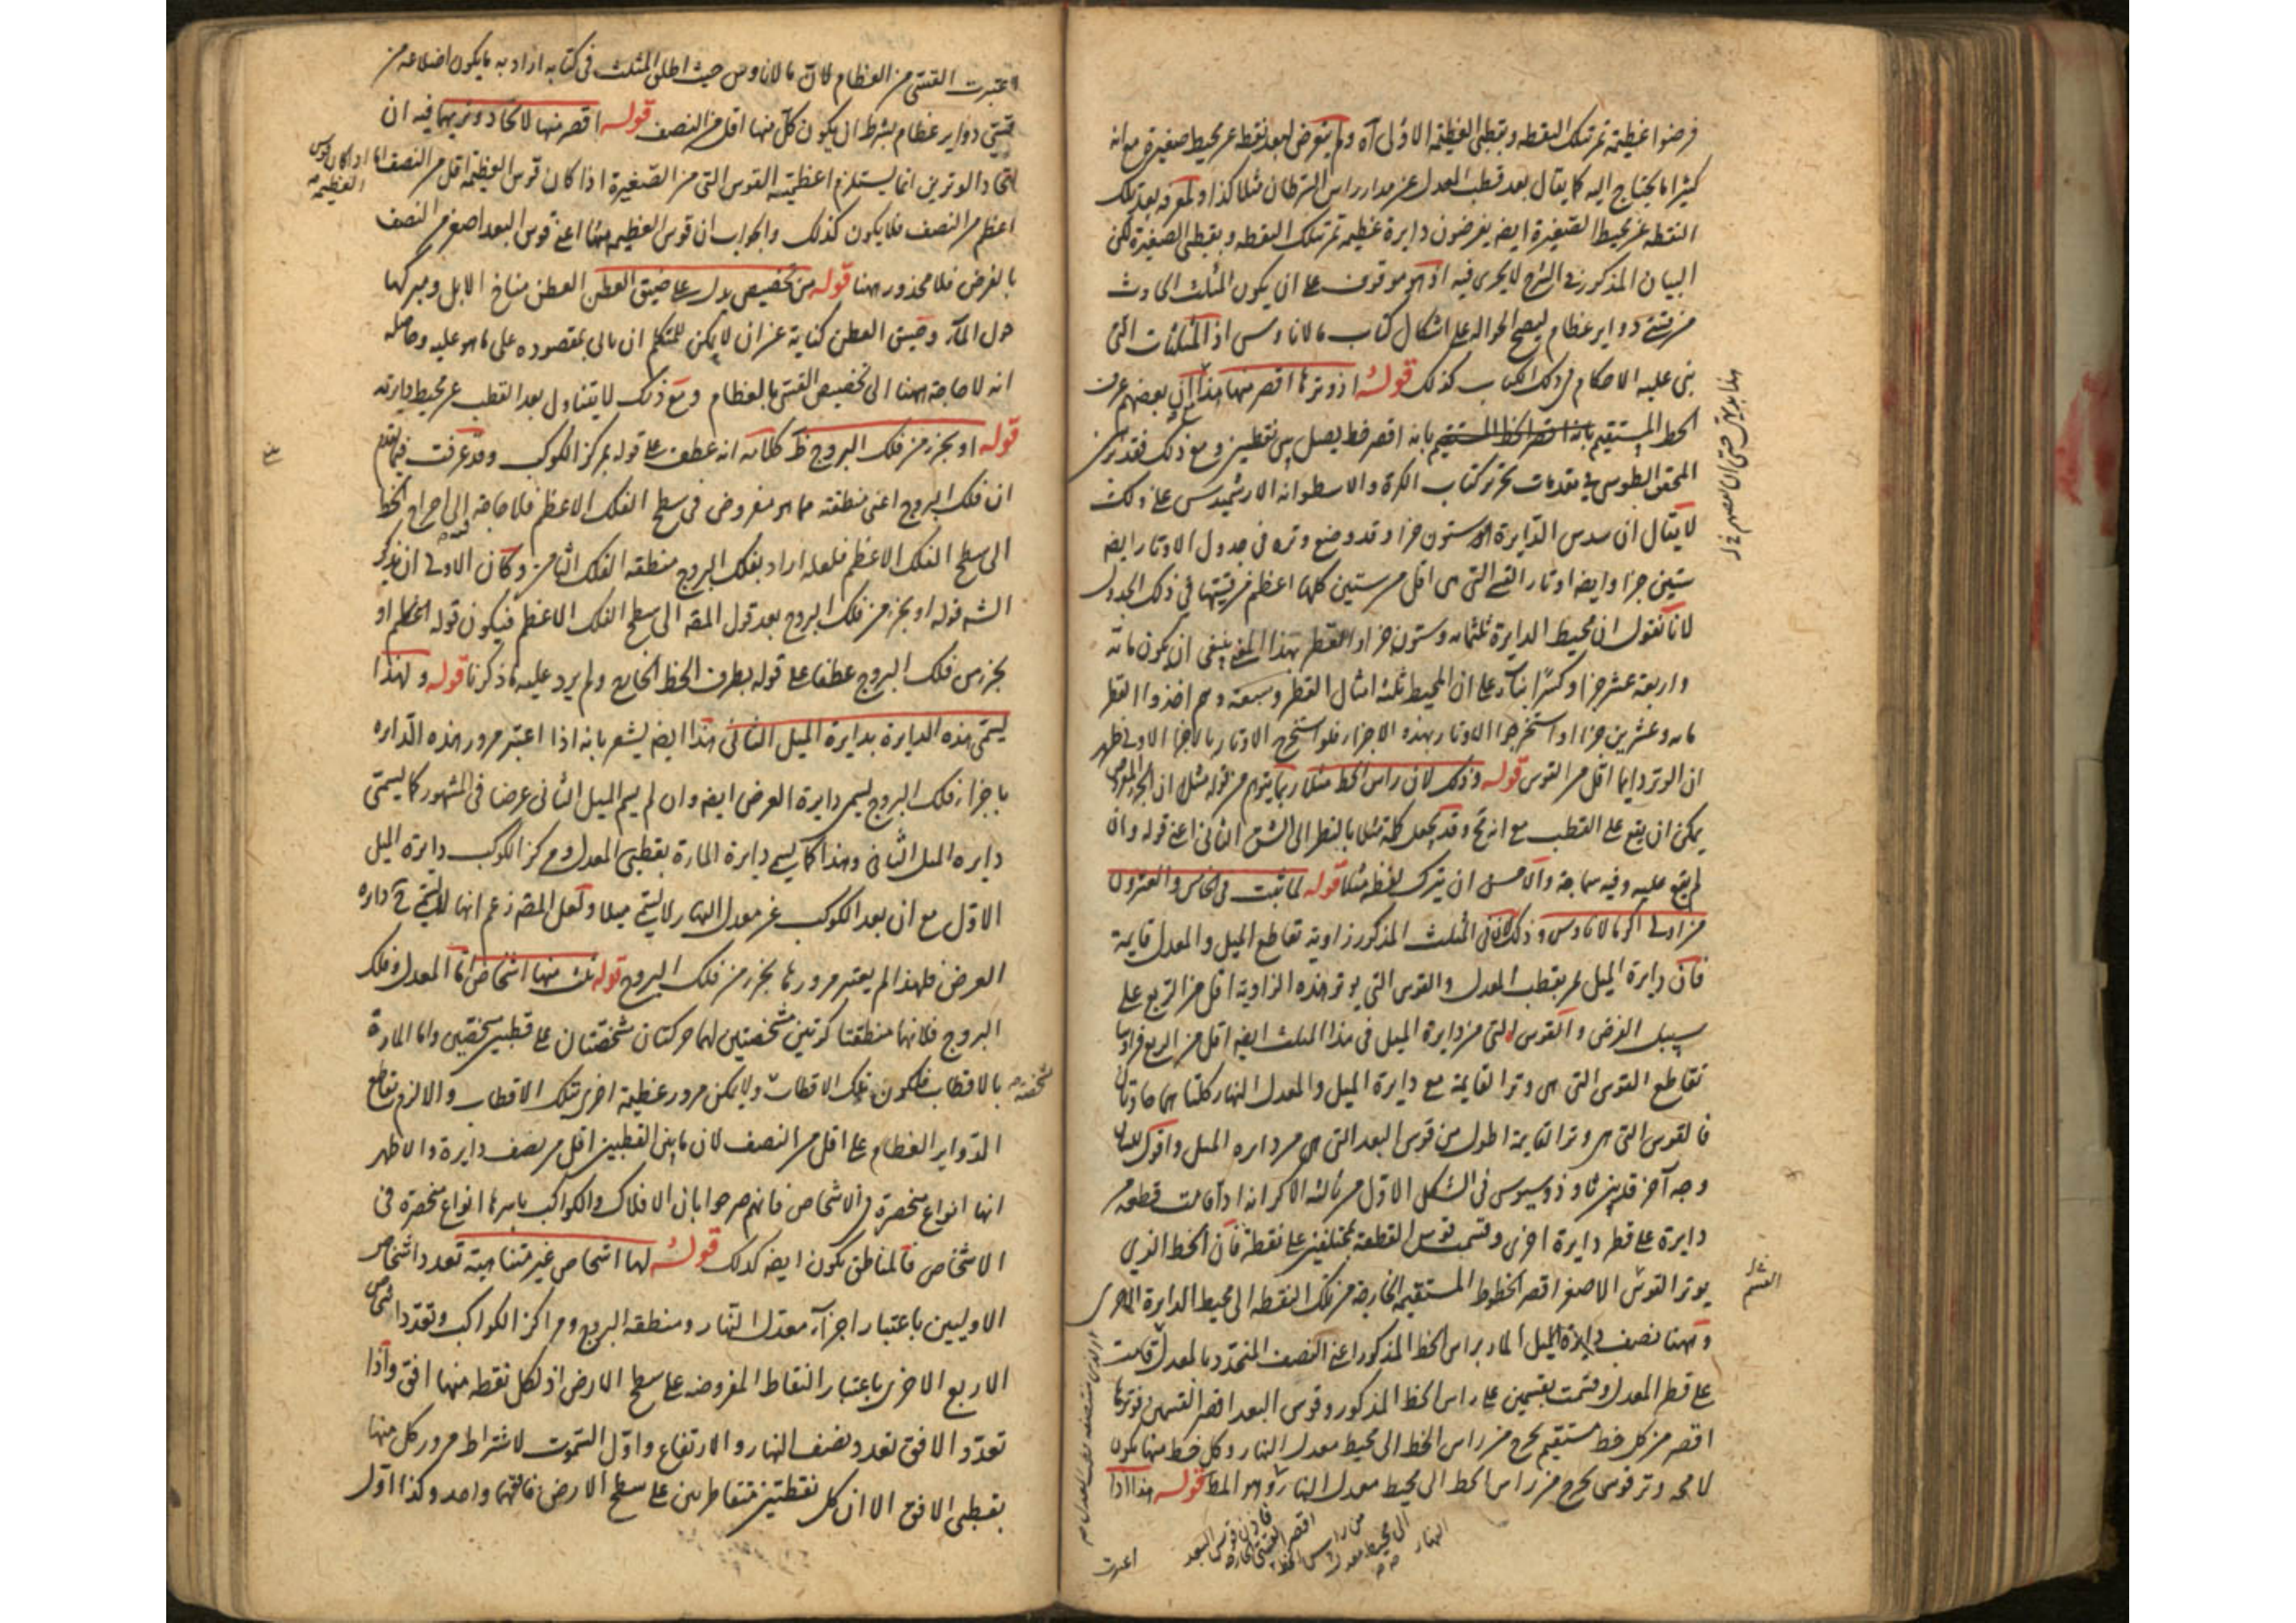 فرضوا عظيمة تمر بتلك النقطه وبقطبى العظيمة الاولى آه ولم يتعرض لبعد نقطه عن محيط صغيرة مع انه
كثيرا ما يحتاج اليه كما يقال بعد قطب المعدل عن مدار راس السرطان مثلا كذا ولمعرفه بعد تلك
النقطه عن محيط الصغيرة ايضه يفرضون دايرة عظيمه تمر بتلك النقطه وبقطبى الصغيرة لكن
البيان المذكور فى الشرح لا يجرى فيه اذ هو موقوف على ان يكون المثلث الحادث
من قسى دواير عظام ليصح الحواله على اشكال كتاب مالاناوس اذ المثلثات التى
بنى عليه الاحكام فى ذلك الكتاب كذلك قوله اذ وترها اقصر منها هذا بعضهم عرف
الخط المستقيم بانه اقصر خط يصل بين نقطتين ومع ذلك فقد
المحقق الطوسى فى مقدمات تحرير كتاب الكرة والاسطوانه لارشميدس على ذلك
لا يقال ان سدس الدايرة ستون جزا وقد وضع وتره فى جدول الاوتار ايضه
ستين جزا وايضه اوتار القسى التى هى اقل من ستين كلها اعظم من قسيها فى ذلك الجدول
لانا نقول ان محيط الدايرة ثلثمائه وستون جزا والقطر بهذا ينبغى ان يكون مائه
واربعة عشر جزا وكسرا بناء على ان المحيط ثلثه امثال القطر وسبعه وهم اخذوا القطر
مائه وعشرين جزاا واستخرجوا الاوتار بهذه الاجزاء فلو استخرج الاوتار بالاجزا الاولى ظهر
ان الوتر دايما اقل من القوس قوله وذلك لان راس الخط مثلا ربما يتوهم من قوله مثلا ان
يمكن ان يقع على القطب مع انه وقد يجعل كلمة مثلا بالنظر الى الشق الثانى اعنى قوله وان
لم يقع عليه وفيه سماجة والاحسن ان يترك لفظه مثلا قوله لما ثبت فى الخامس والعشرون
من اولى اكر مالاناوس وذلك لان فى المثلث المذكور زاوية تقاطع الميل والمعدل قايمة
فان دايرة الميل تمر بقطب المعدل والقوس التى يوتر هذه الزاوية اقل من الربع على
سبيل الفرض والقوس التى من دايرة الميل فى هذا المثلث ايضه اقل من الربع فزاويتا
تقاطع القوس التى هى وتر القايمة مع دايرة الميل والمعدل النهار كلتا هما حادتان
فالقوس التى هى وتر القايمة اطول من قوس البعد التى هى من دايره الميل واقول
وجه آخر قد بين ثاوذوسيوس فى الشكل الاول من ثالثه الاكر انه اذا قامت قطعه من
دايرة على قطر دايرة اخرى وقسمت قوس القطعة بمختلفين على نقطة فان الخط الذى
يوتر القوس الاصغر اقصر الخطوط المستقيمه الخارجه من تلك النقطه الى محيط الدايرة الاخرى
وههنا نصف دايرة الميل المار براس الخط المذكور اعنى النصف المتحدد بالمعدل قامت
على قطر المعدل وقسمت بقسمين على راس الخط المذكور وقوس البعد اقصر القسمين فوترها
اقصر من كل خط مستقيم يخرج من راس الخط الى محيط معدل النهار وكل خط منها يكون
لا محه وتر قوس يخرج من راس الخط الى محيط معدل النهار وهو المط قوله هذا اذا
اعتبرت
اعتبرت القسى من العظام لان مالاناوس حيث اطلق المثلث فى كتابه اراد به ما يكون اضلاعه من
قسى دواير عظام بشرط ان يكون كل منها اقل من النصف قوله اقصر منها لاتحاد وتريهما فيه ان
اتحاد الوترين انما يستلزم اعظمية القوس التى من الصغيرة اذا كان قوس العظيمة اقل من النصف اما
اذا كان قوس العظيمه
اعظم من النصف فلا يكون كذلك والجواب ان قوس العظيمه ههنا اعنى قوس البعد اصغر من النصف
بالفرض فلا محذور ههنا قوله من تخصيص يدل على ضيق العطن العطن مناخ الابل ومبركها
حول الماء وضيق العطن كناية عن ان لا يمكن للمتكلم ان ياتى بمقصوده على ما هو عليه وحاصله
انه لا حاجة ههنا الى تخصيص القسى بالعظام ومع ذلك لا يتناول بعد القطب عن محيط دايرته
قوله او بجزء من فلك البروج ظ كلامه انه عطف على قوله بمركز الكوكب وقد عرفت فيما تقدم
ان فلك البروج اعنى منطقته مما هو مفروض فى سطح الفلك الاعظم فلا حاجة الى اخراج الخط
الى سطح الفلك الاعظم فلعله اراد بفلك البروج منطقه الفلك الثامن وكان الاولى ان يذكر
الشه قوله او بجزء من فلك البروج بعد قول المصه الى سطح الفلك الاعظم فيكون قوله او
بجزء من فلك البروج عطفا على قوله بطرف الخط الخارج ولم يرد عليه ما ذكرنا قوله ولهذا
يسمى هذه الدايرة بدايرة الميل الثانى هذا ايضه يشعر بانه اذا اعتبر مرور هذه الدايره
باجزاء فلك البروج يسمى دايرة العرض ايضه وان لم يسم الميل الثانى عرضا فى المشهور كما يسمى
دايره الميل الثانى وهذا كما يسمى دايرة المارة بقطبى المعدل ومركز الكوكب دايرة الميل
الاول مع ان بعد الكوكب عن معدل النهار لا يسمى ميلا ولعل المصه زعم انها لا يسمى ح دايره
العرض فلهذا لم يعتبر مرورها بجزء من فلك البروج قوله ثلث منها اشخاص اما المعدل وفلك
البروج فلانهما منطقتا كرتين مشخصتين لهما حركتان مشخصتان على قطبين مشخصين واما المارة
بالاقطاب فلكون تلك الاقطاب ولا يمكن مرور عظيمة اخرى بتلك الاقطاب والا لزم تقاطع
مشخصه
الدواير العظام على اقل من النصف لان ما بين القطبين اقل من نصف دايرة والاظهر
انها انواع منحصرة فى الاشخاص فانهم صرحوا بان الافلاك والكواكب باسرها انواع منحصرة فى
الاشخاص فالمناطق يكون ايضه كذلك قوله لها اشخاص غير متناهية تعدد اشخاص
الاوليين باعتبار اجزاء معدل النهار ومنطقه البروج ومراكز الكواكب وتعدد اشخاص
الاربع الاخرى باعتبار النقاط المفروضه على سطح الارض اذ لكل نقطه منها افق واذا
تعدد الافق تعدد نصف النهار والارتفاع واول السموت لاشتراط مرور كل منها
بقطبى الافق الا ان كل نقطتين متقاطرتين على سطح الارض فافقهما واحد وكذا اول